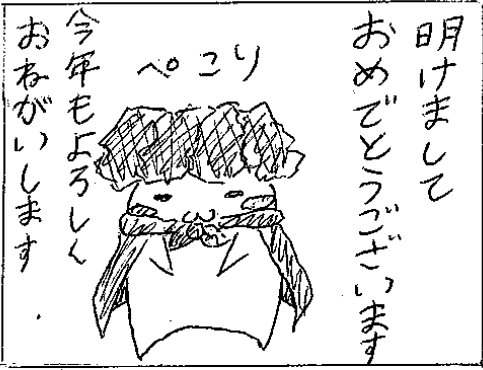 明けまして
おめでとうございます
ぺこり
今年もよろしく
おねがいします